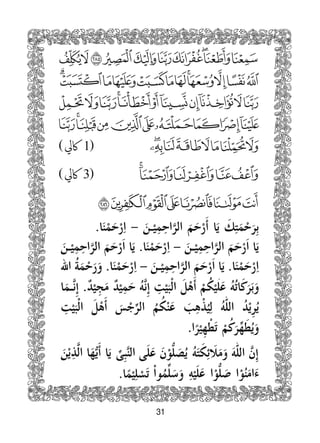 سَمِعْنَا وَأَطَعْنَا غُفْرَانَكَ رَبَّنَا وَإِلَيْكَ ٱلْمَصِيرُ ۝٢٨٥ لَا يُكَلِّفُ
ٱللَّهُ نَفْسًا إِلَّا وُسْعَهَا لَهَا مَا كَسَبَتْ وَعَلَيْهَا مَا ٱكْتَسَبَتْ
رَبَّنَا لَا تُؤَاخِذْنَآ إِن نَّسِينَآ أَوْ أَخْطَأْنَا رَبَّنَا وَلَا تَحْمِلْ
عَلَيْنَآ إِصْرًا كَمَا حَمَلْتَهُۥ عَلَى ٱلَّذِينَ مِن قَبْلِنَا رَبَّنَا
وَلَا تُحَمِّلْنَا مَا لَا طَاقَةَ لَنَا بِهِۦ (1 كالي)
وَٱعْفُ عَنَّا وَٱغْفِرْ لَنَا وَٱرْحَمْنَآ (3 كالي)
أَنتَ مَوْلَىٰنَا فَٱنصُرْنَا عَلَى ٱلْقَوْمِ ٱلْكَٰفِرِينَ ۝٢٨٦
بِرَحْمَتِكَ يَا أَرْحَمَ الرَّاحِمِيْنَ – اِرْحَمْنَا.
يَا أَرْحَمَ الرَّاحِمِيْنَ – اِرْحَمْنَا. يَا أَرْحَمَ الرَّاحِمِيْنَ –
اِرْحَمْنَا. يَا أَرْحَمَ الرَّاحِمِيْنَ – اِرْحَمْنَا. وَرَحْمَةُ الله
وَبَرَكَاتُهُ عَلَيْكُمْ أَهْلَ الْبَيْتِ إِنَّهُ حَمِيْدٌ مَجِيْدٌ. إِنَّمَا
يُرِيْدُ اللهُ لِيُذْهِبَ عَنْكُمُ الرِّجْسَ أَهْلَ الْبَيْتِ
وَيُطَهِّرَكُمْ تَطْهِيْرًا.
إِنَّ اللهَ وَمَلَائِكَتَهُ يُصَلُّوْنَ عَلَى النَّبِيِّ يَا أَيُّهَا الَّذِيْنَ
ءَامَنُوْا صَلُّوْا عَلَيْهِ وَسَلِّمُوا تَسْلِيْمًا.
31